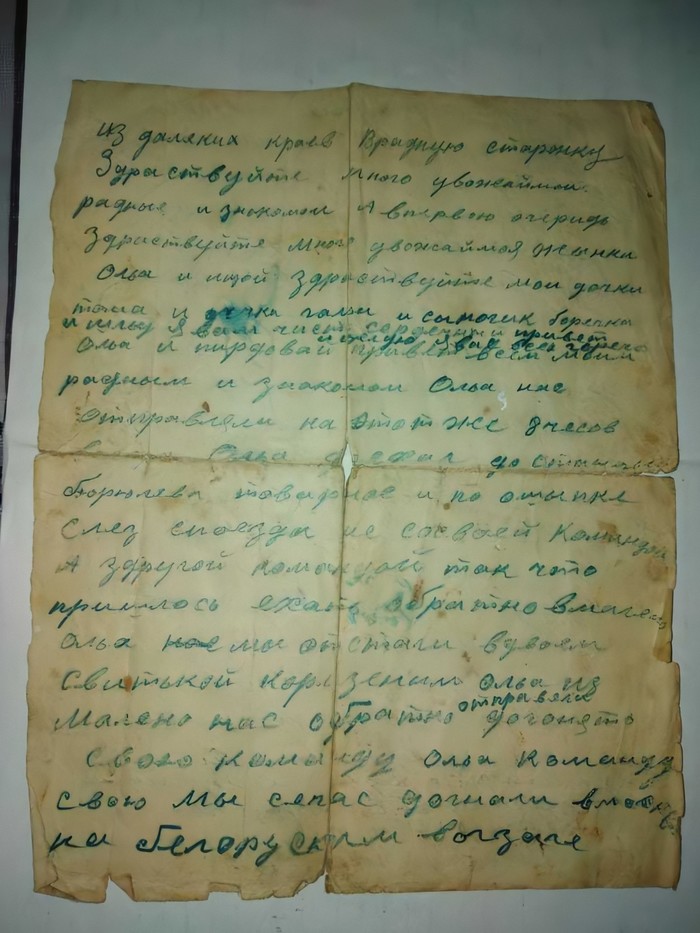 из далеких краев Врадную старонку
Здраствуйте много уважаймои.
радные и знакомои А впервою очередь
Здраствуйте много увожаймоя жынка
Ольа и мой здраствуйте мои дочки
тома и дочка галы и сыночик боречка
и шлю Я вам чист сердечный привет
и целую Я вас всех горечо
Ольа и пирдовай привет всем моим
радным и знакомом Ольа нас
отправляли на этот же 5 чесов
Ольа доехал до станцыи
товарное и по ошыпке
слез споезда не сосвоей командой
А здругой командой так что
пришлось ехать обратно
ольа мы отстали вувоем
Свитькой ольа из
нас обратно отправели догонять
свою команду Ольа команду
свою мы сечас догнали
на белоруским вогзале